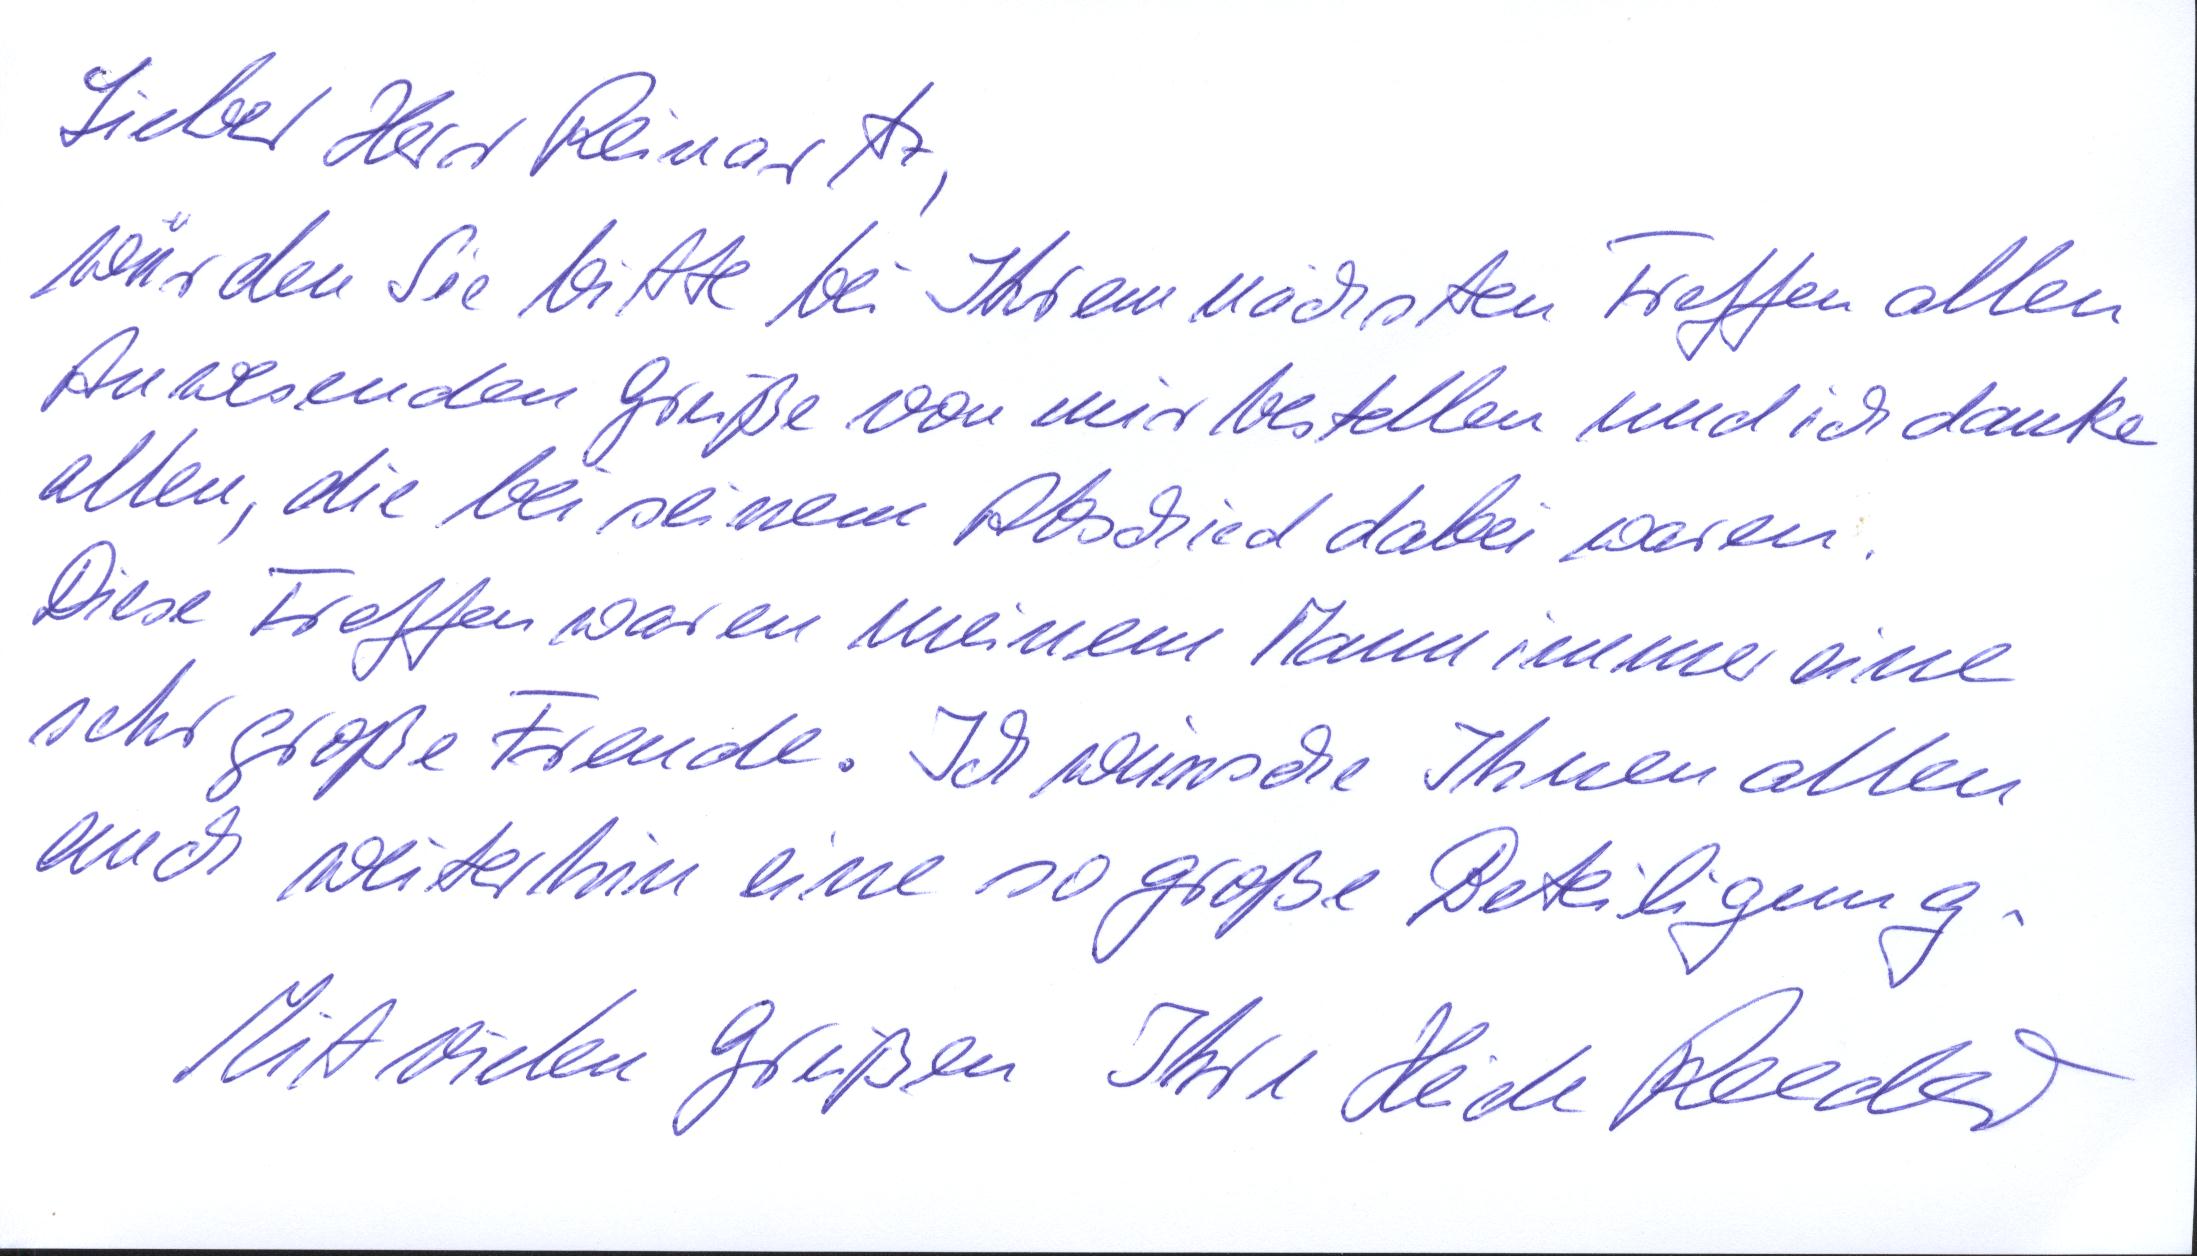 Lieber Herr Reinartz,
würden Sie bitte bei Ihrem nächsten Treffen allen
Anwesenden Grüße von mir bestellen und ich danke
allen, die bei seinem Abschied dabei waren.
Diese Treffen waren meinem Mann immer eine
sehr große Freude. Ich wünsche Ihnen allen
auch weiterhin eine so große Beteiligung.
Mit vielen Grüßen Ihre Heide